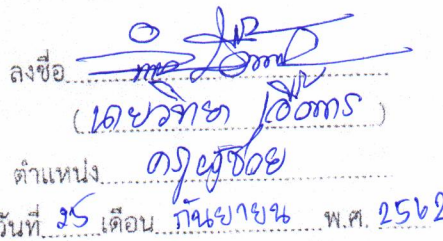 ลงชื่อ
(นายวิทยา เอื้อการ)
ตำแหน่ง ครูผู้ช่วย
วันที่ 25 เดือน กันยายน พ.ศ. 2562